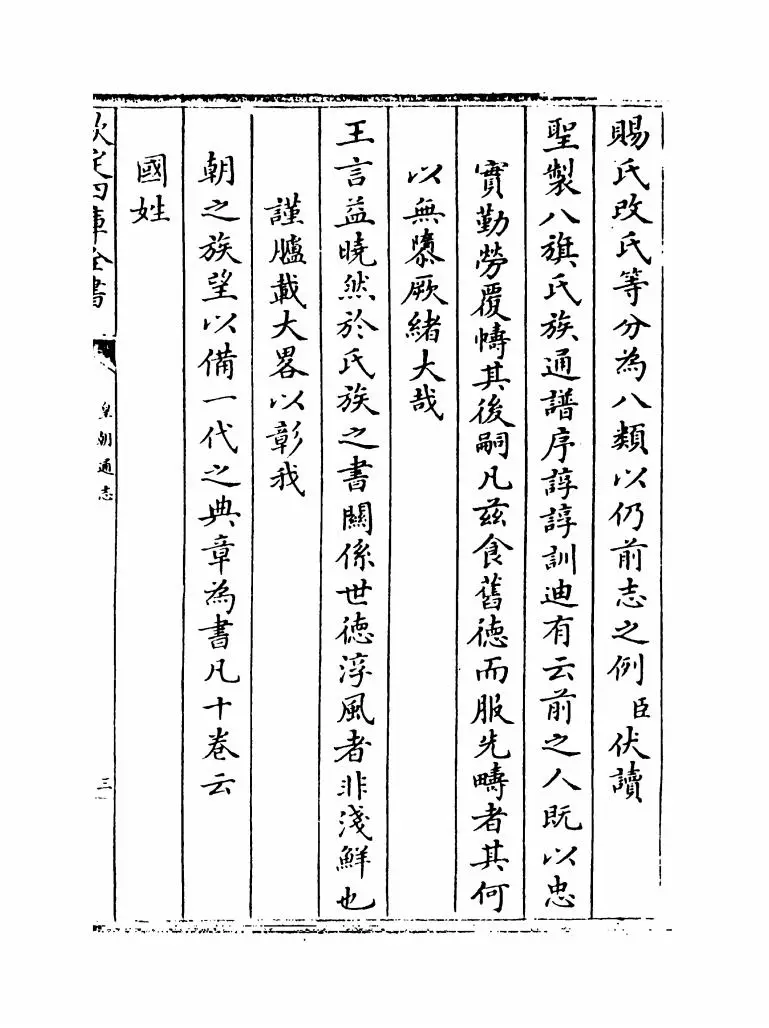 賜氏改氏等分為八類以仍前志之例臣伏讀
聖製八旗氏族通譜序諄諄訓迪有云前之人既以忠
實勤勞覆幬其後嗣凡茲食舊德而服先疇者其何
以無隳厥緒大哉
王言益曉然於氏族之書關係世德淳風者非淺鮮也
謹臚載大畧以彰我
朝之族望以備一代之典章為書凡十卷云
國姓
欽定四庫全書
皇朝通志
三